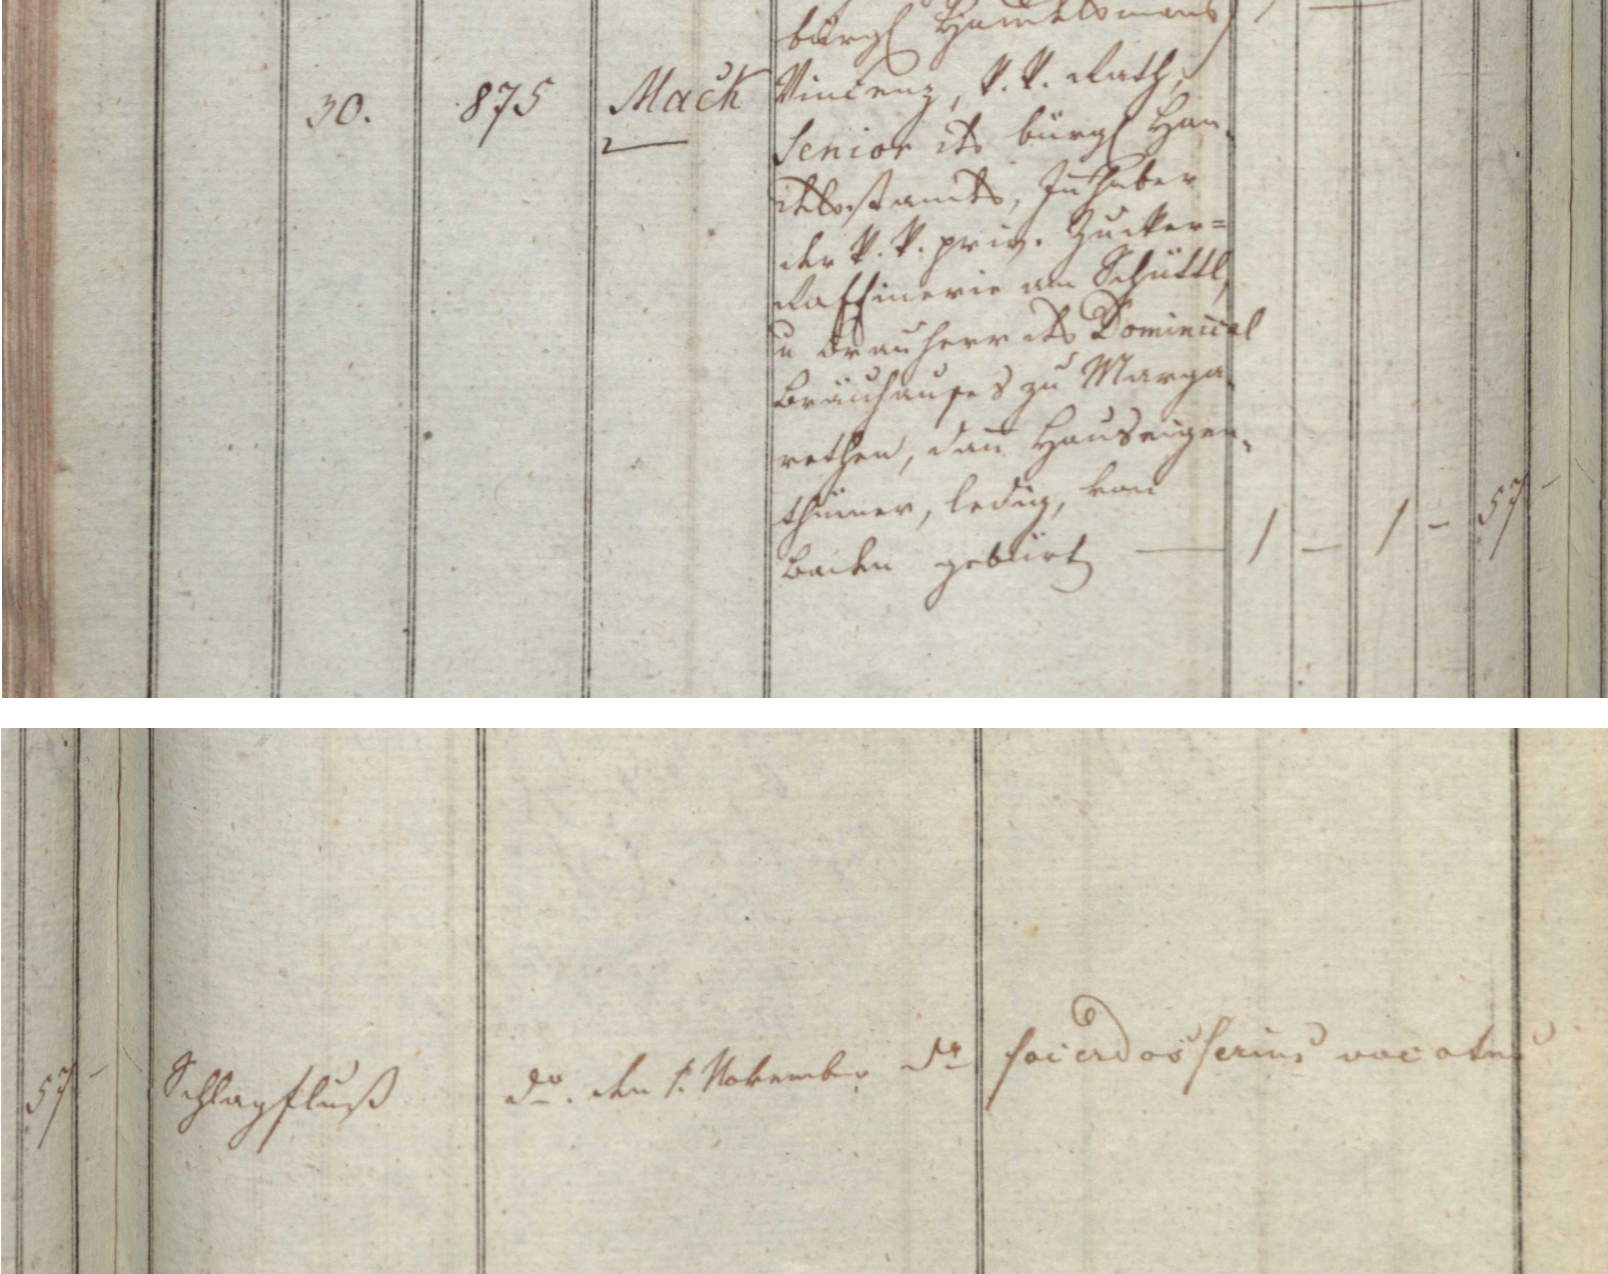 bürgl Handelsmans
30. 875 Mack Vincenz, k. k. Rath,
Senior des bürgl Han-
delsstands, Inhaber
der k. k. priv. Zucker=
Raffinerie am Schüttl,
u Brauherr des Dominical
Bräuhauses zu Marga-
rethen, dañ Hauseigen-
thümer, ledig, von
Baden gebürt — 1 – 1 – 57 –
57 – Schlagfluß do. den 1. November do sacerdos serius vocatus